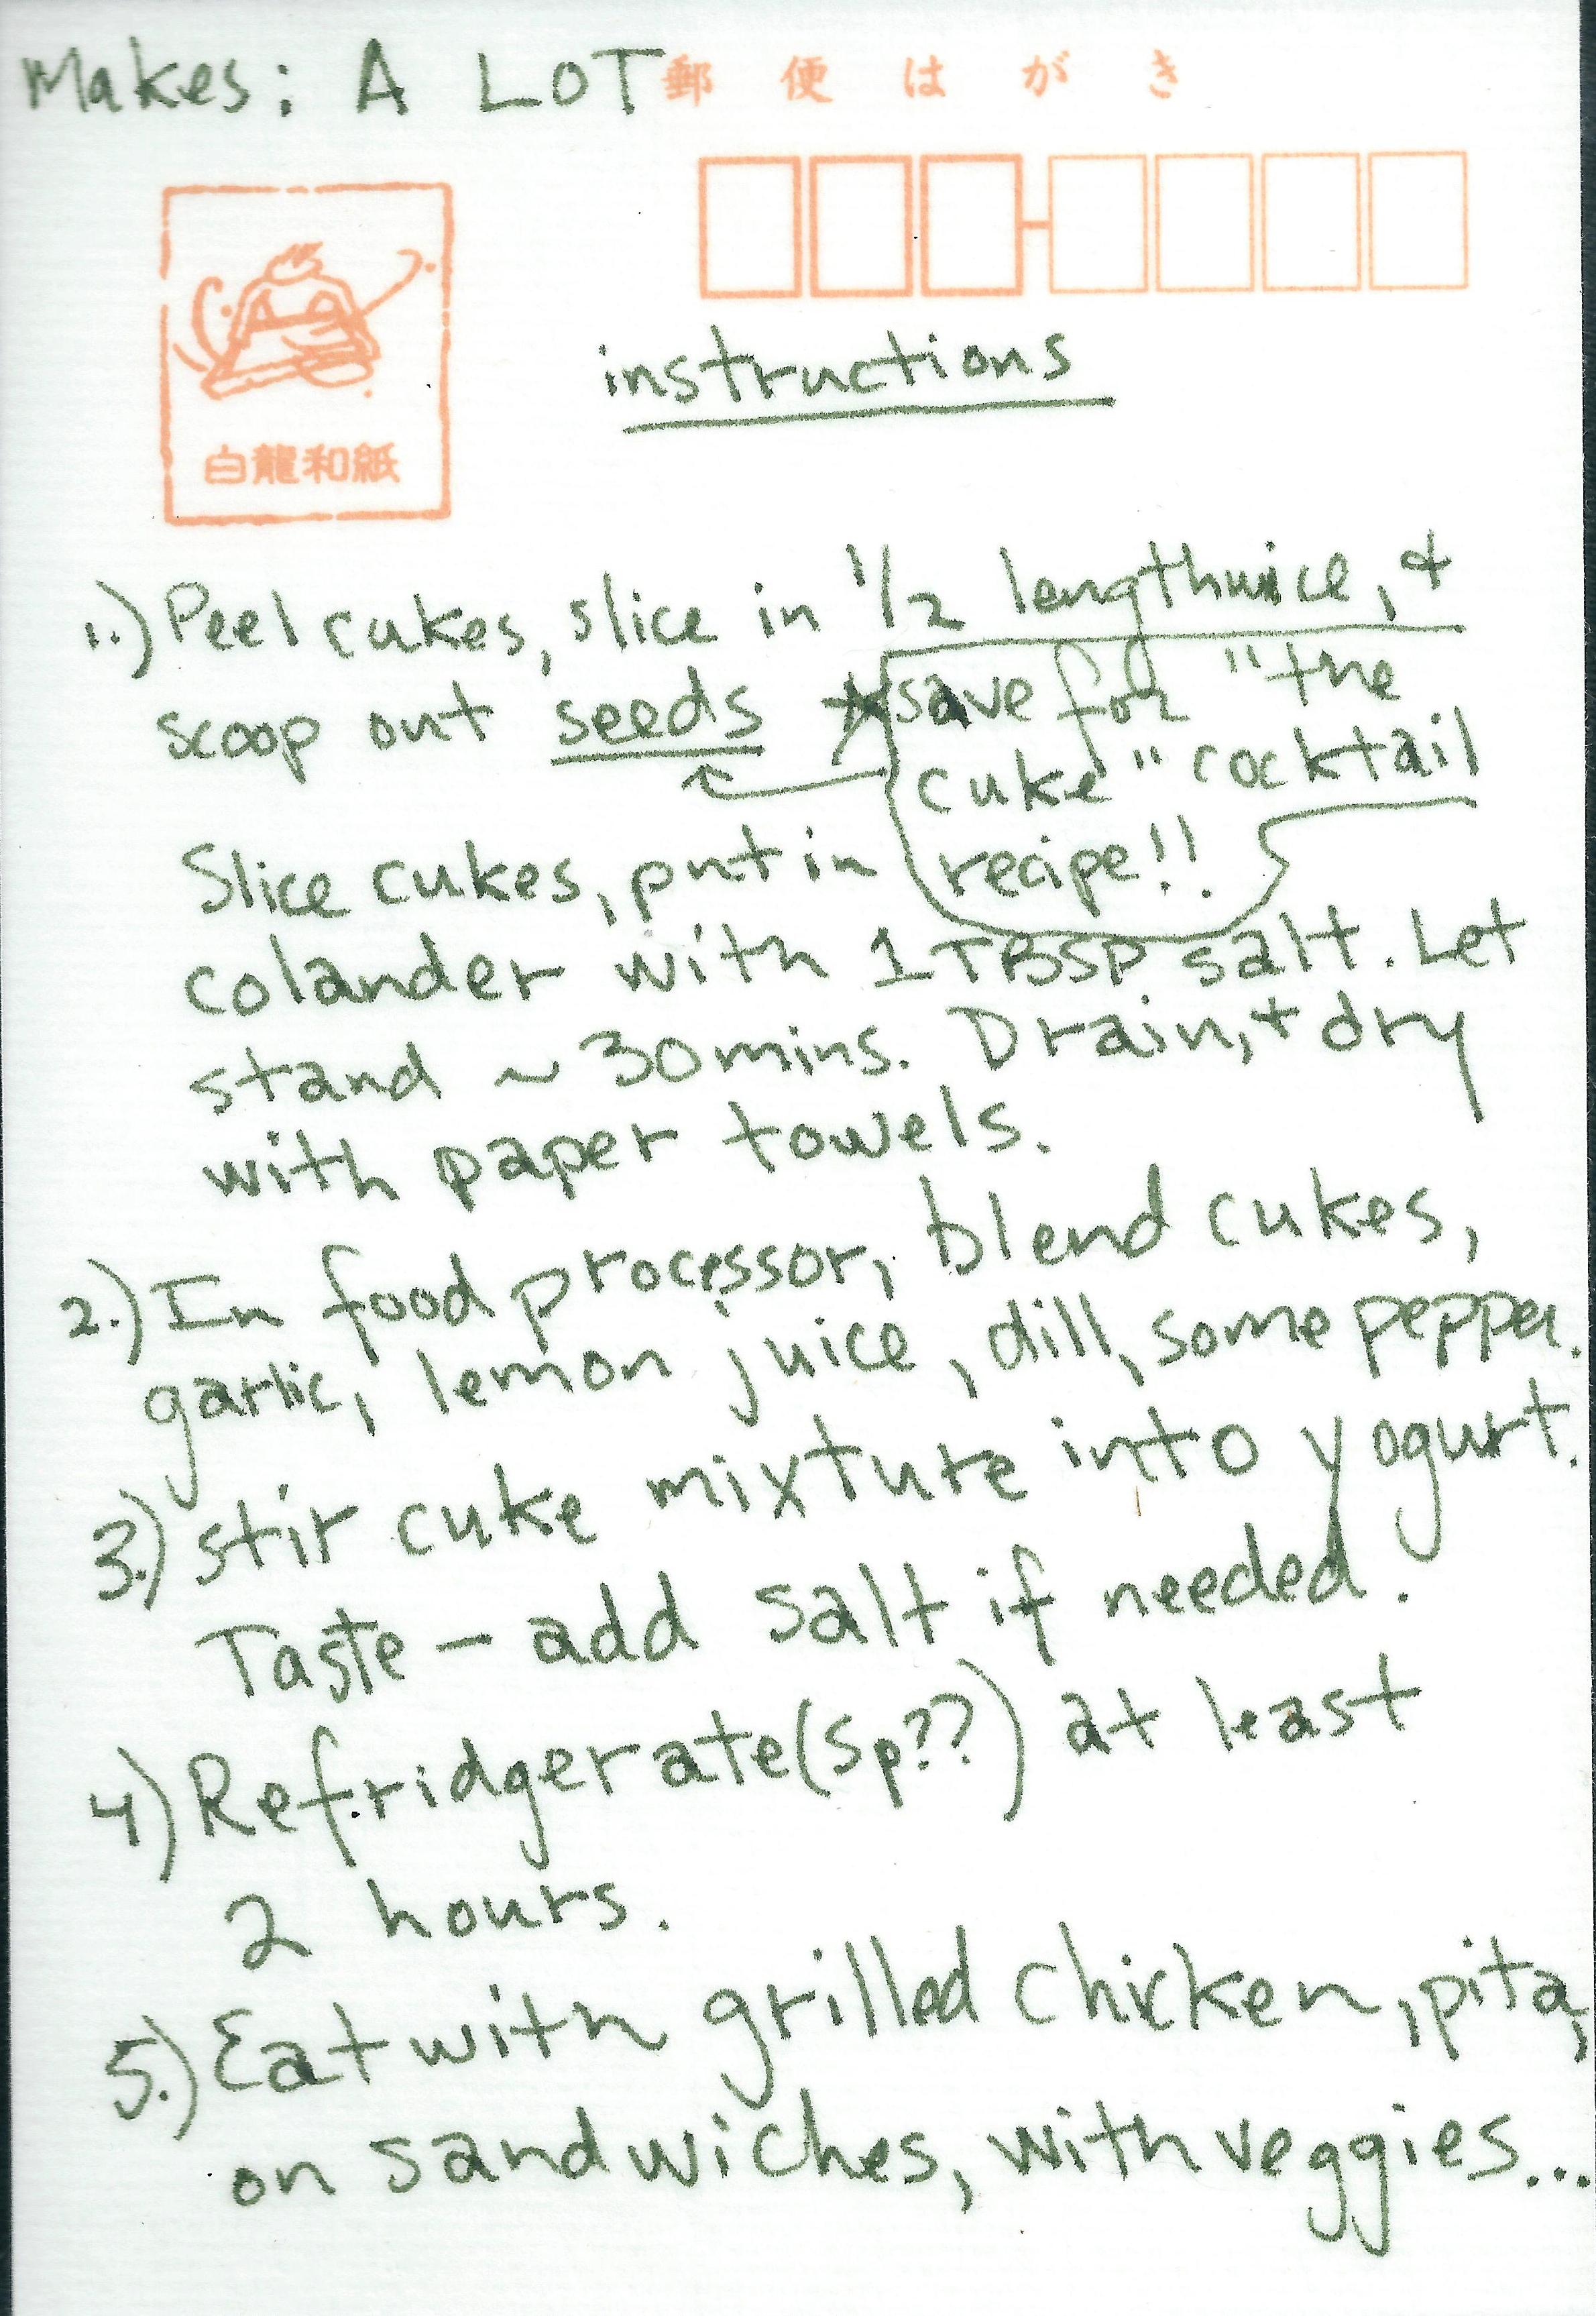 Makes: A LOT
郵便はがき
白龍和紙
instructions
1.) Peel cukes, slice in 1/2 lengthwice, &
scoop out seeds
*save for "the
cuke" cocktail
recipe!!
Slice cukes, put in
colander with 1 TBSP salt. Let
stand ~ 30 mins. Drain, + dry
with paper towels.
2.) In food processor, blend cukes,
garlic, lemon juice, dill, some pepper.
3.) stir cuke mixture into yogurt.
Taste – add salt if needed.
4) Refridgerate (sp??) at least
2 hours.
5.) Eat with grilled chicken, pita,
on sandwiches, with veggies...